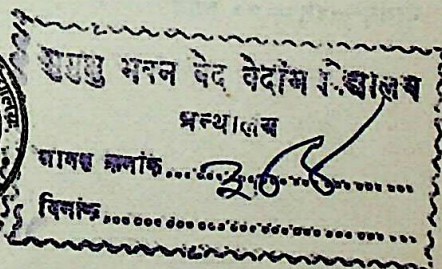 मुमुक्षु भवन वेद वेदांग विद्यालय
ग्रन्थालय
आगत क्रमांक............३०८............
दिनांक............